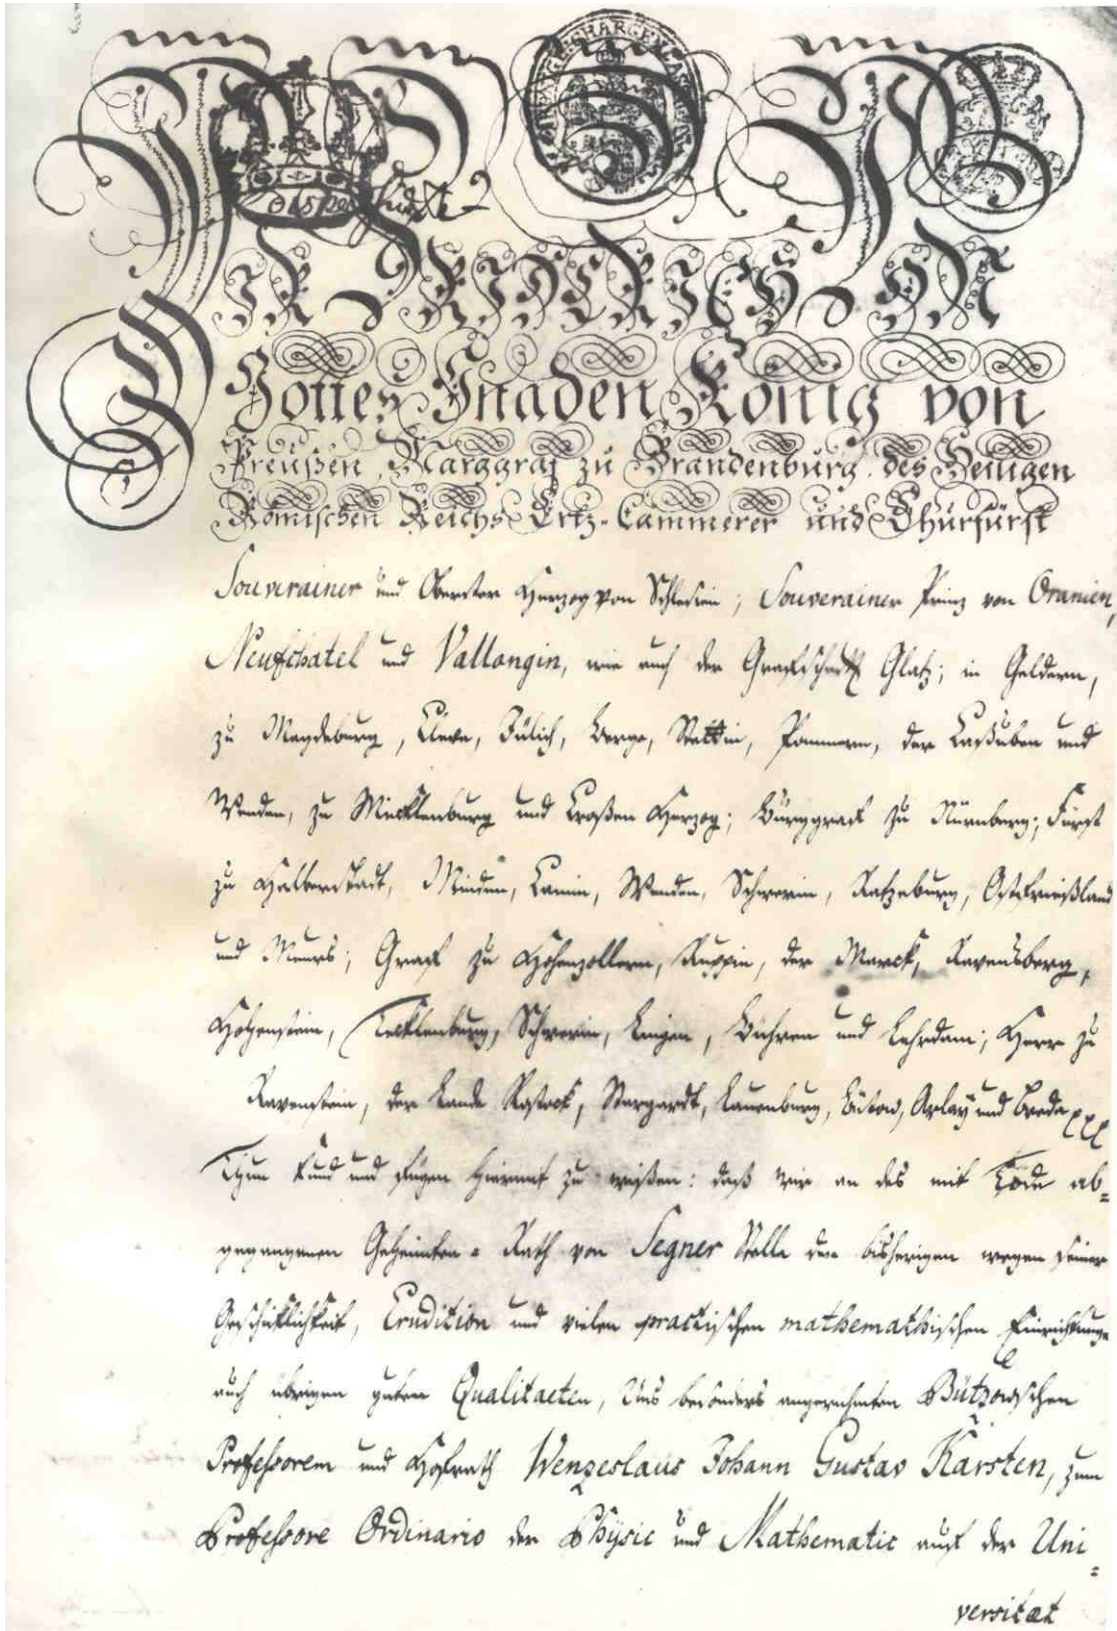 WIR FRIDERICH VON
Gottes Gnaden König von
Preußen, Marggraf zu Brandenburg, des Heiligen
Römischen Reichs Ertz-Cämmerer und Churfürst
Souverainer und Oberster Hertzog von Schlesien; Souverainer Prinz von Oranien,
Neufchatel und Vallangin, wie auch der Grafschafft Glatz; in Geldern,
zu Magdeburg, Cleve, Jülich, Berge, Stettin, Pommern, der Caßuben und
Wenden, zu Mecklenburg und Croßen Herzog; Burggraf zu Nürnberg; Fürst
zu Halberstadt, Minden, Camin, Wenden, Schwerin, Ratzeburg, Ostfrießland
und Meurs; Graf zu Hohenzollern, Ruppin, der Marck, Ravensberg,
Hohenstein, Tecklenburg, Schwerin, Lingen, Bühren und Lehrdam; Herr zu
Ravenstein, der Lande Rostock, Stargardt, Lauenburg, Bütow, Arlay und Breda
Thun kund und fügen hiermit zu wißen: daß wir an des mit Tode ab=
gegangenen Geheimten=Rath von Segner Stelle den bisherigen wegen seiner
Geschicklichkeit, Erudition und vielen practischen mathemathischen
auch übrigen guten Qualitaeten, Uns besonders angerühmten Bützowschen
Professorem und Hofrath Wenzeslaus Johann Gustav Karsten, zum
Professore Ordinario der Physic und Mathematic auf der Uni=
versitæt